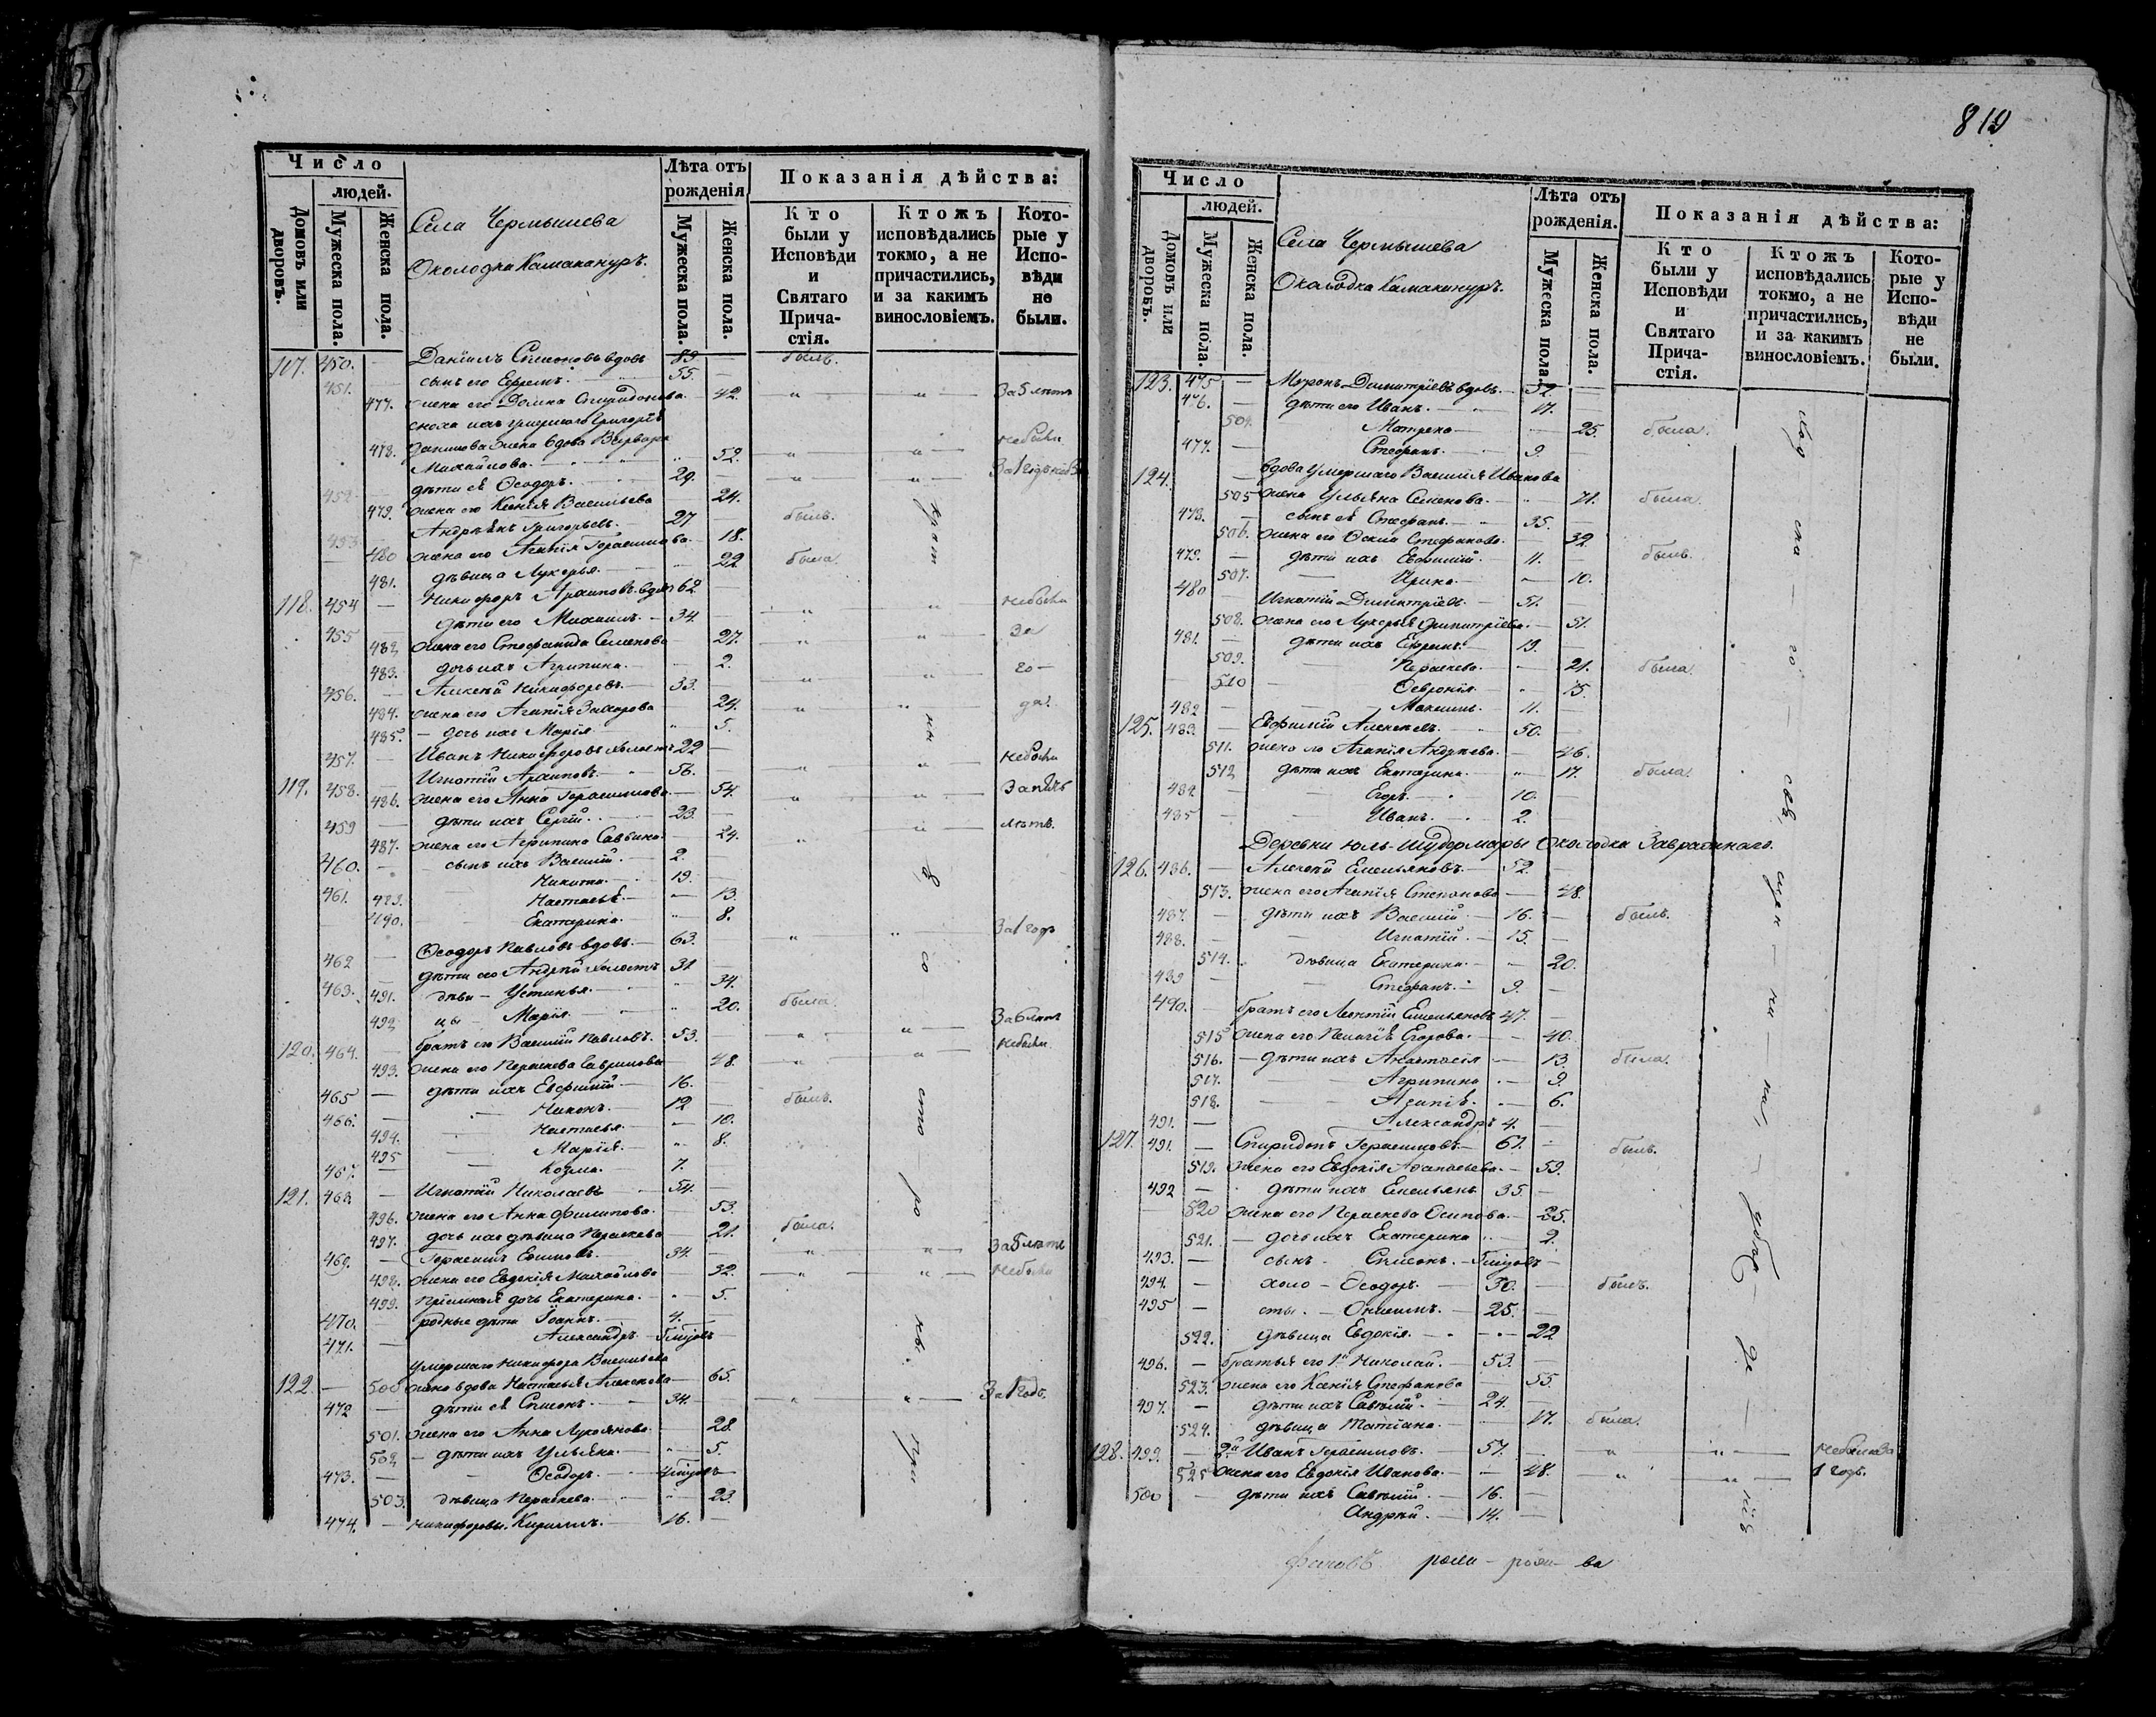 819
Число
людей.
Домовъ или дворовъ.
Мужеска пола.
Женска пола.
Села Чермышева
Околодка Камакануръ.
Лѣта отъ рожденія
Мужеска пола.
Женска пола.
Показанія дѣйства:
Кто были у Исповѣди и Святаго Причастія.
Ктожъ исповѣдались токмо, а не причастились, и за какимъ винословіемъ.
Которые у Исповѣди не были.
117. 450. — Даніилъ Симоновъ вдовъ 89 — былъ.
451. — сынъ его Ефремъ. 55. —
477. жена его Домна Спиридонова. 42. За 5 лѣтъ
сноха ихъ умершаго Григорія
478. Данилова жена вдова Варвара небыли
Михайлова. 52. За 1 годъ
452. дѣти её Ѳеодоръ. 29.
479. жена его Ксенія Васильева 24.
453. Андреянъ Григорьевъ. 27 — былъ.
480 жена его Агапія Герасимова. 18.
481. дѣвица Лукерья. 22 была
118. 454 — Никифоръ Архиповъ вдовъ 62. небыли
455 дѣти его Михаилъ. — 34. За
482 жена его Стефанида Семенова 27.
483. дочь ихъ Агрипина. — 2. го —
456. — Алексѣй Никифоровъ. — 33. да.
484. жена его Агапія Захарова 24.
485. — дочь ихъ Марія 5.
457. — Иванъ Никифоровъ холостъ 22 — небыли
119. 458. Игнатій Архиповъ. 56. За пять
486. жена его Анна Герасимова. 54. лѣтъ.
459 — дѣти ихъ Сергій. 23.
487. жена его Агрипина Саввина. 24.
460. — сынъ ихъ Василій. 2.
461. Никита. 19.
489. Настасья. — 13.
490. Екатерина. 8.
462 — Ѳеодоръ Павловъ вдовъ. — 63. За 1 годъ
463. дѣти его Андрей холостъ 31
491. дѣви — Устинья. 34.
492 цы — Марія. 20. была.
120. 464. — братъ его Василій Павловъ. 53. За 6 лѣтъ небыли
493. жена его Параскева Гаврилова 48.
465 — дѣти ихъ Евфимій — 16.
466. Никонъ. 12 былъ.
494. Настасья. — 10.
495 Марія. 8.
467. — Козма. 7.
121. 468 — Игнатій Николаевъ 54. —
496. жена его Анна Филипова. 53.
497. дочь ихъ дѣвица Параскева 21. была.
469. 34. За 5 лѣтъ
498. жена его Евдокія Михайлова 32. небыли
499. Пріемная дочь Екатерина. 5.
470. — родные дѣти Іоаннъ. 4. —
471. — Александръ
умершаго Никифора Васильева
122 — 500 жена вдова Настасья Алексѣева — 65.
472 — дѣти её Симонъ. 34. За 1 годъ.
501. жена его Анна Лукоянова 28.
502 — дѣти ихъ Ульяна. 5.
473. — Ѳеодоръ.
503. дѣвица Параскева. 23.
474. — Никифоровы Кириллъ. 16. —
Число
людей.
Домовъ или дворовъ.
Мужеска пола.
Женска пола.
Села Чермышева
Околодка Камакануръ.
Лѣта отъ рожденія.
Мужеска пола.
Женска пола.
Показанія дѣйства:
Кто были у Исповѣди и Святаго Причастія.
Ктожъ исповѣдались токмо, а не причастились, и за какимъ винословіемъ.
Которые у Исповѣди не были.
123. 475 — Миронъ Димитріевъ вдовъ. 52. —
476. — дѣти его Иванъ. 17.
504. Матрена 25. была.
477. — Стефанъ. 9. —
124. вдова умершаго Василія Иванова
505 жена Ульяна Семенова. — 71. была
478. — сынъ её Стефанъ. — 35. —
506. жена его Стефанова. 32
479. — дѣти ихъ Евфимій. 11. былъ.
507. Ирина. 10.
480 Игнатій Димитріевъ. — 51.
508. жена его Лукерья Димитріева. — 51.
481. — дѣти ихъ Ефремъ. 19.
509. Параскева. 21. была
510 Февронія. 15.
482 Максимъ. 11.
125. 483. — Евфимій Алексѣевъ. 50.
511. жена его Агапія Андреева. 46.
512 дѣти ихъ Екатерина. 17. была.
484. Егоръ. 10. —
485 Иванъ. 2. —
Деревни Юль-Шудермары Околодка Завражнаго.
126. 486. — Алексѣй Емельяновъ. — 52. —
513. жена его Агапія Степанова — 48.
487. — дѣти ихъ Василій. — 16. — былъ.
488. — Игнатій. — 15. —
514. дѣвица Екатерина. — 20.
489 Стефанъ. 9. —
490. — братъ его Леонтій Емельяновъ 47. —
515 жена его Пелагія Егорова. 40.
516. — дѣти ихъ Анастасія 13. была.
517. Агрипина 9.
518. Агапія. 6.
491. — Александръ 4. —
127. 491. — Спиридонъ Герасимовъ. 61. былъ.
519. жена его Евдокія Афанасьева. — 59.
492 — дѣти ихъ Емельянъ 35. —
520 жена его Параскева Осипова. 35.
521. — дочь ихъ Екатерина 2.
493. — сынъ Симонъ.
494. — холо — Ѳеодоръ. 30. былъ.
495 — сты. — Онисимъ. — 25. —
522. дѣвица Евдокія. 22
496. — братья его 1й Николай. — 53. —
523. жена его Ксенія Стефанова 55.
497. — дѣти ихъ Савелій. — 24. —
524. дѣвица Татіана. 17. была.
128. 499. — 2й Иванъ Герасимовъ. 57. небыли за
525 жена его Евдокія Иванова. 48. 1 годъ.
500 — дѣти ихъ Савелій. — 16. —
Андрей. — 14. —